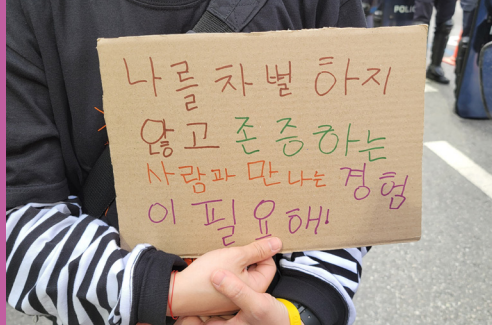 POLIC
나를 차별 하지
않고 존증하는
사람과 만나는 경험
이 필요해!